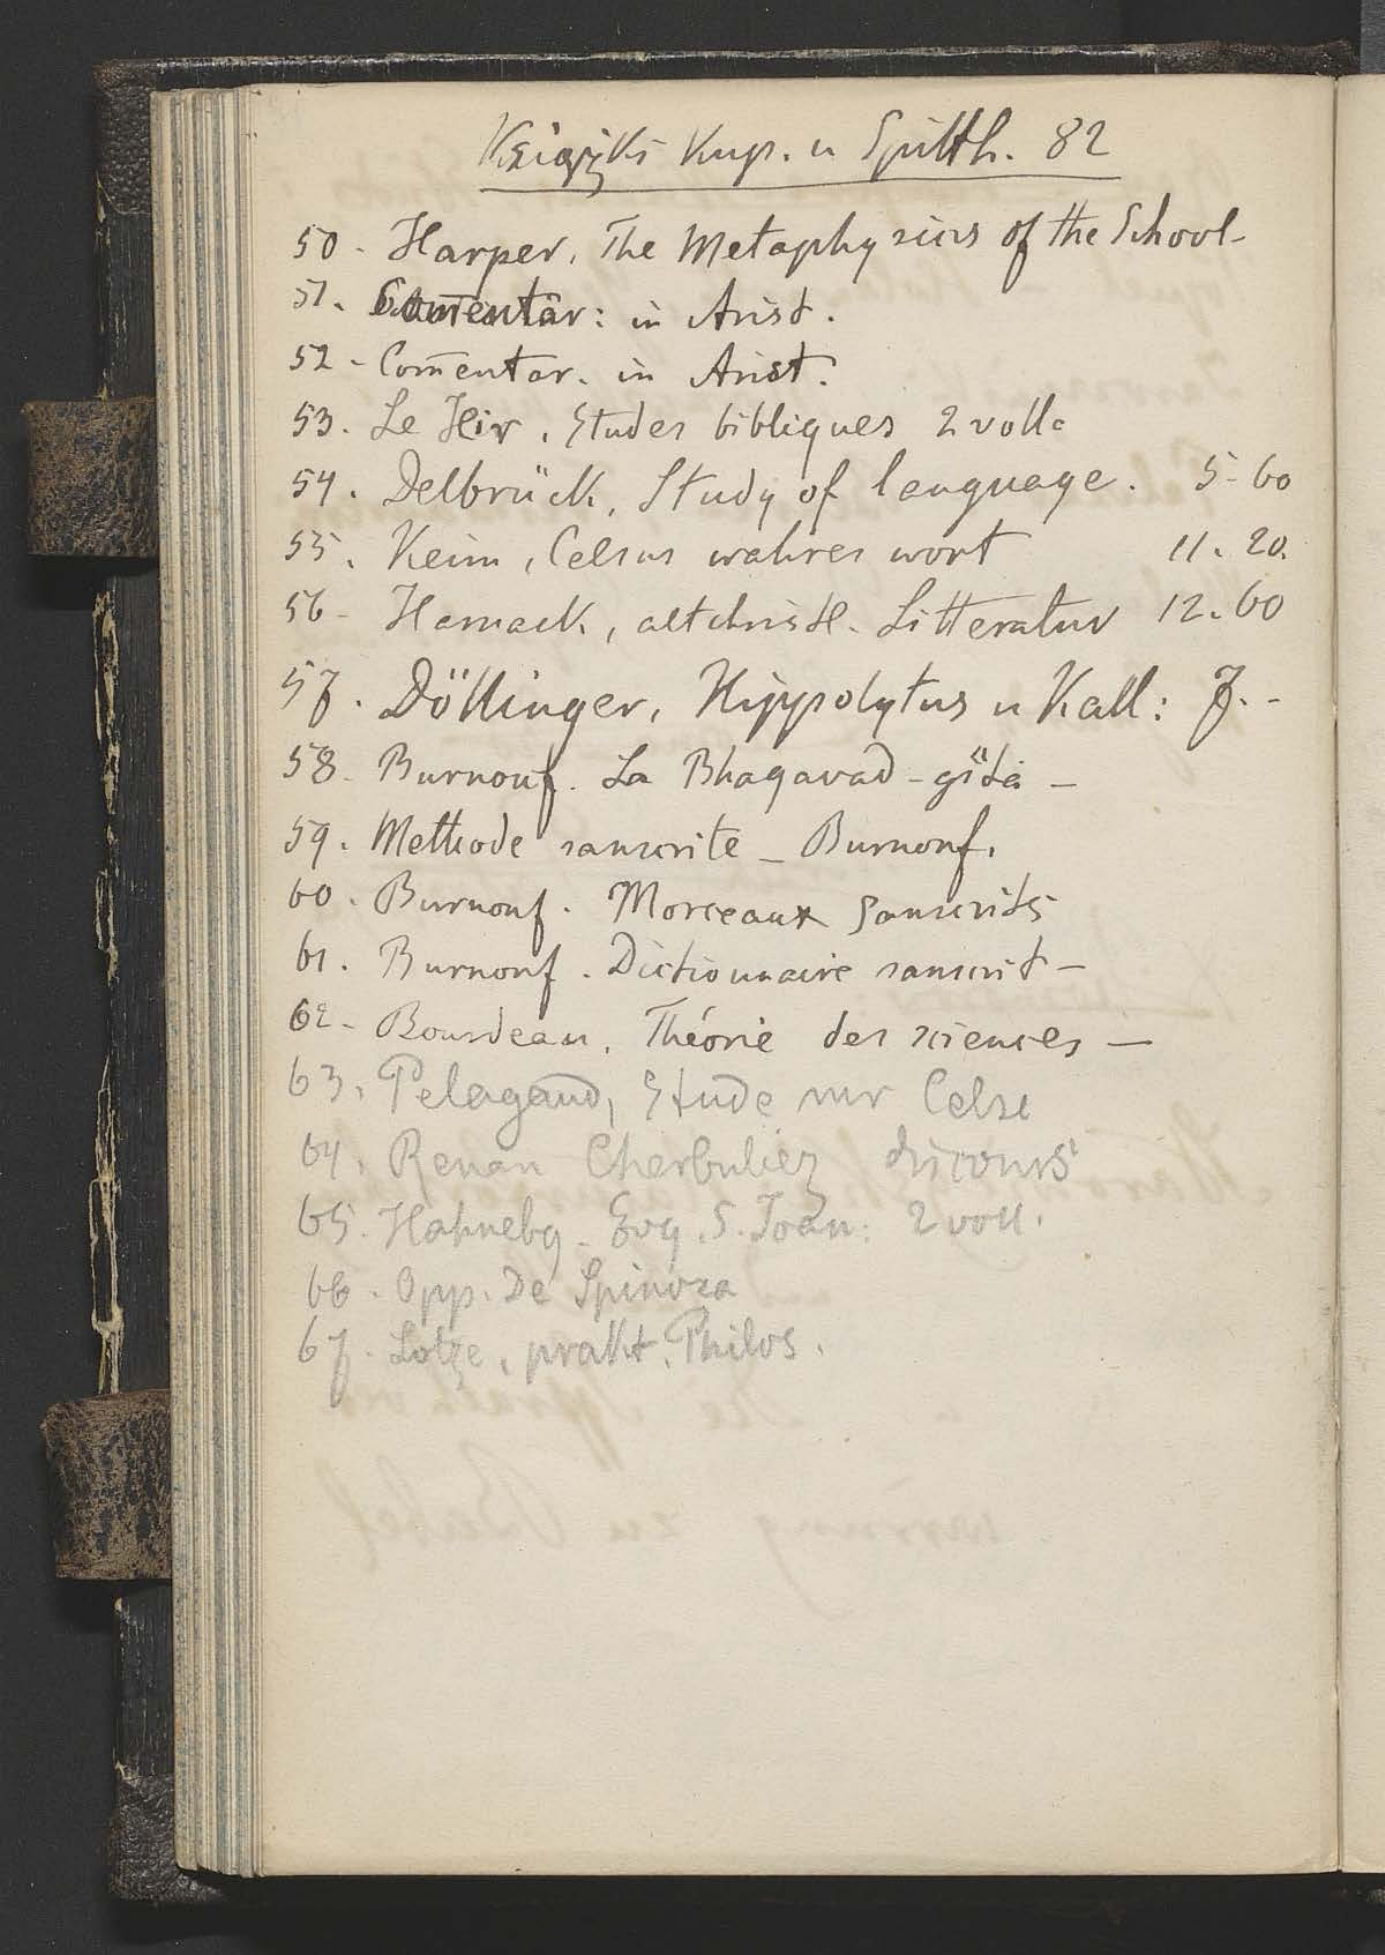 Książki Kup. u Spitth. 82
50 - Harper, The Metaphysics of the School-
51. Com̄entar: in Arist.
52 - Com̄entar. in Arist.
53. Le Hir, Etudes bibliques 2 voll.
54. Delbrück, Study of language. 5-60
55. Keim, Celsus wahres wort 11. 20.
56 - Harnack, altchristl. Litteratur 12.60
57. Döllinger, Hippolytus u Kall: 7.-
58. Burnouf. La Bhagavad-gîtâ -
59. Methode sanscrite - Burnouf.
60. Burnouf. Morceaux sanscrits
61. Burnouf. Dictionnaire sanscrit -
62 - Bourdeau, Théorie des sciences -
63. Pelagaud, Etude sur Celse
64. Renan Cherbuliez discours
65. Hahnebg - Evg. S. Joan: 2 voll.
66. Opp. De Spinoza
67. Lotze, prakt. Philos.